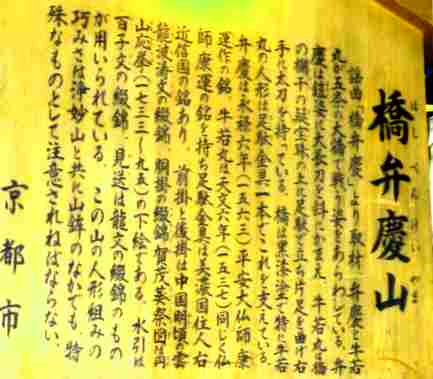 橋弁慶山
はしべんけいやま
謡曲「橋弁慶」より取材、弁慶と牛若
丸が五条の大橋で戦う姿をあらわしている。弁
慶は鎧姿に大長刀を斜にかまえ、牛若丸は橋
の欄干の擬宝珠の上に足駄で立ち片足を曲げ右
手に太刀を持っている。橋は黒漆塗で特に牛若
丸の人形は足駄金具一本でこれを支えている。
弁慶は永禄六年(一五六三)平安大仏師康
運作の銘、牛若丸は天文六年(一五三七)同じく仏
師康運の銘を持ち足駄金具は大濱国住人右
近信国の銘あり。前掛と後掛は中国明頃雲
龍波濤文の綴錦、胴掛の綴錦賀茂葵祭図は円
山応挙(一七三三〜九五)の下絵である。水引は
百子文の綴錦、見送は龍文の綴錦のもの
が用いられている。この山の人形組みの
巧みさは浄妙山と共に山鉾のなかでも、特
殊なものとして注意されねばならない。
京都市